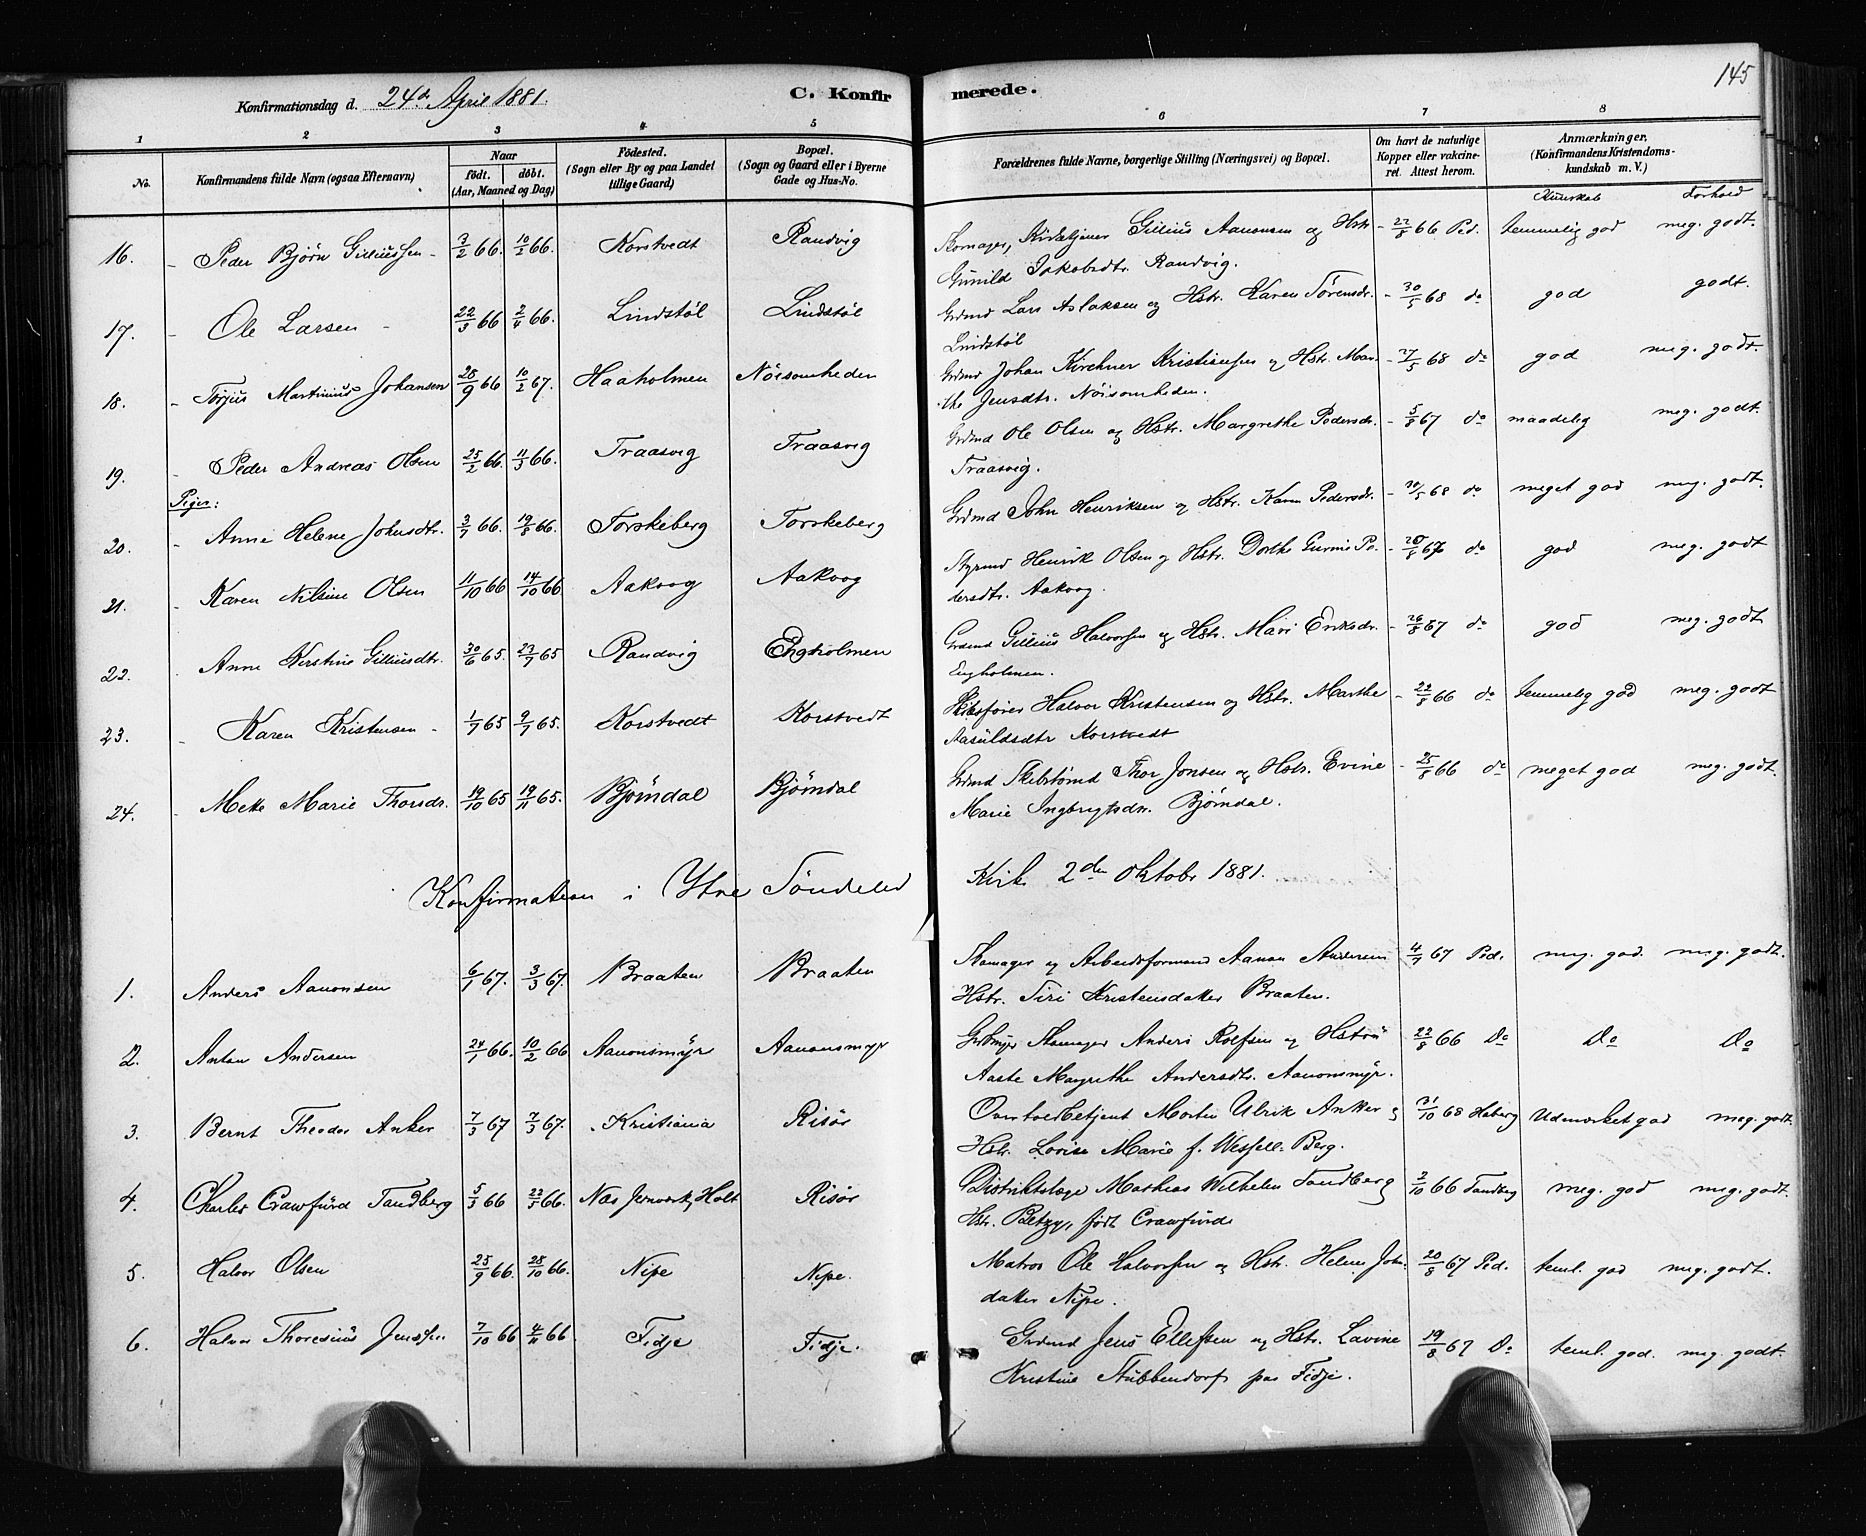 145
Konfirmationsdag d. 24de April 1881.
C. Konfirmerede.
1 2 3 4 5 6 7 8
No.
Konfirmandens fulde Navn (ogsaa Efternavn)
Naar
født. døbt.
(Aar, Maaned og Dag)
Födested.
(Sogn eller By og paa Landet
tillige Gaard)
Bopæl.
(Sogn og Gaard eller i Byerne
Gade og Hus-No.
Forældrenes fulde Navne, borgerlige Stilling (Næringsvei) og Bopæl.
Om havt de naturlige
Kopper eller vakcine-
ret. Attest herom.
Anmærkninger,
(Konfirmandens Kristendoms-
kundskab m. V.)
Kundskab Forhold
16. Peder Bjørn Gilliussen 3/2 66. 10/2 66. Korstvedt Randvig Skomager, Kirketjener Gillius Aanonsen og Hstr. 22/8 66 Ped. temmelig god meg. godt.
Gunild Jakobsdtr. Randvig.
17. Ole Larsen 22/3 66 2/4 66. Lindstøl Lindstøl Grdmd Lars Aslaksen og Hstr. Karen Törensdr. 30/5 68 do god godt.
Lindstøl
18. Torjus Martinius Johansen 28/9 66 10/2 67. Haaholmen Nöisomheden Grdmd Johan Kirchner Kristiansen og Hstr. Mar- 27/5 68 do god meg. godt.
the Jensdtr. Nöisomheden.
19. Peder Andreas Olsen 25/2 66. 11/3 66. Traasvig Traasvig Grdmd Ole Olsen og Hstr. Margrethe Pedersdr. 5/8 67 do maadelig meg. godt.
Traasvig.
Piger:
20. Anne Helene Johnsdtr. 3/7 66. 19/8 66. Torskeberg Torskeberg Grdmd John Henriksen og Hstr. Karen Pedersdr. 30/5 68 do meget god meg. godt.
21. Karen Nilsine Olsen 11/10 66 14/10 66 Aakvog Aakvog Styrmd Henrik Olsen og Hstr. Dorthe Gurine Pe- do god meg. godt
dersdtr. Aakvog.
22. Anne Kerstine Gilliusdtr. 30/6 65. 23/7 65 Randvig Engholmen Grdmd Gillius Halvorsen og Hstr. Mari Eriksdr. 26/8 67 do god meg. godt
Engholmen.
23. Karen Kristensen 1/7 65 9/7 65. Korstvedt Korstvedt Skibsfører Halvor Kristensen og Hstr. Marthe 22/8 66 do temmelig god meg. godt
Aasuldsdtr Korstvedt
24. Meke Marie Thorsdr. 19/10 65 19/11 65. Bjørndal Bjørndal Grdmd Skibstømd Thor Jonsen og Hstr. Evine 25/8 66 do meget god meg. godt.
Marie Ingbrigtsdtr. Bjørndal.
Konfirmation i Ytre Söndeled Kirke 2den Oktobr 1881.
1. Anders Aanonsen 6/1 67. 3/3 67. Braaten Braaten Skomager og Arbeidsformand Aanon Andersen 4/7 67 Ped. meg. god. meg. godt.
Hstr. Siri Kristensdatter Braaten.
2. Anton Andersen 24/1 66. 10/2 66 Aanonsmyr Aanonsmyr Skomager Anders Roefsen og Hstru 22/8 66 Do Do Do
Aaste Margrethe Andersdtr. Aanonsmyr.
3. Bernt Theodor Anker 7/3 67 7/5 67. Kristiania Risör Overtoldbetjent Morten Ulrik Anker og 31/10 68 Hoberg Udmærket god meg. godt.
Hstr. Lovise Marie f. Wesfell-Berg.
4. Charles Crawfurd Tandberg 5/3 66 23/5 66. Næs Jernværk, Holt Risør Distriktslæge Mathias Wilhelm Tandberg og 3/10 66 Tandberg meg. god meg. godt.
Hstr. Betzy, født Crawfurd
5. Halvor Olsen 25/9 66. 28/10 66. Nipe Nipe. Matros Ole Halvorsen og Hstr. Helene John- 20/8 67 Ped. teml. god meg. godt.
datter Nipe.
6. Halvor Thoresius Jenssen 7/10 66 4/11 66. Fidje Fidje. Grdmd Jens Ellefsen og Hstr. Lavine 19/8 67 Do teml. god. meg. godt.
Kristine Stubbendorf paa Fidje.